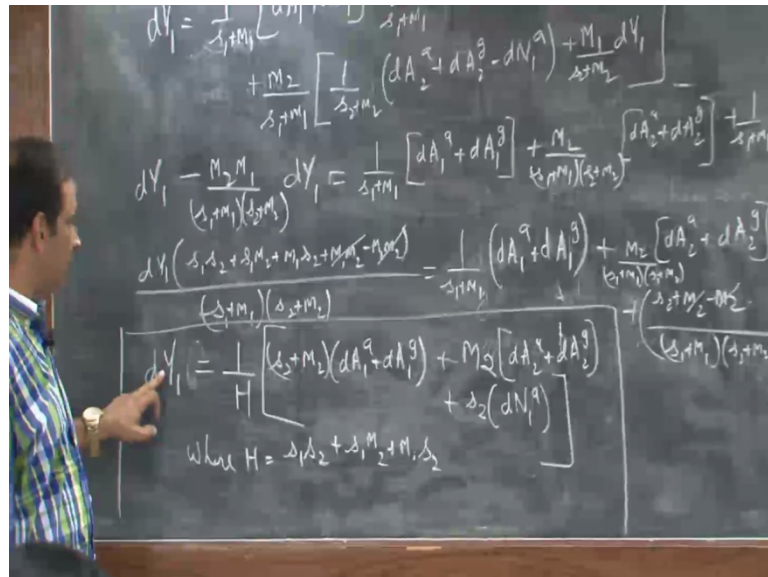 dY₁ = 1/(s₁+M₁) [
+ M₂/(s₁+M₁) [ 1/(s₂+M₂) (dA₂ᵃ + dA₂ᵍ - dN₁ᵃ) + M₁/(s₂+M₂) dY₁ ]
dY₁ - M₂M₁/((s₁+M₁)(s₂+M₂)) dY₁ = 1/(s₁+M₁) [dA₁ᵃ + dA₁ᵍ] + M₂/((s₁+M₁)(s₂+M₂)) [dA₂ᵃ + dA₂ᵍ] + 1/(s₁+M₁
dY₁(s₁s₂ + s₁M₂ + M₁s₂ + M₁M₂ - M₁M₂)/((s₁+M₁)(s₂+M₂)) = 1/(s₁+M₁) (dA₁ᵃ + dA₁ᵍ) + M₂/((s₁+M₁)(s₂+M₂)) [dA₂ᵃ + dA₂ᵍ]
+ (s₂+M₂-M₂)/((s₁+M₁)(s₂+M₂
dY₁ = 1/H [(s₂+M₂)(dA₁ᵃ + dA₁ᵍ) + M₂[dA₂ᵃ + dA₂ᵍ]
+ s₂(dN₁ᵃ)]
where H = s₁s₂ + s₁M₂ + M₁s₂